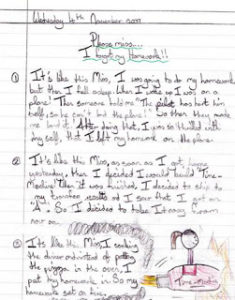 Wednesday 4th November
Please miss....
I forgot my Homework!!
① It's like this Miss, I was going to do my homework
but then I fell asleep. When I woke up I was on a
plane! Then someone told me "The pilot has hurt him
self, so he can't land the plane!" So then they made
me land it. After doing that, I was so thrilled with
my self, that I left my homework on the plane.
② It's like this Miss, as soon as I got home
yesterday, then I decided I would build Time-
Machine! Then it was finished, I decided to skip to
my results and I saw that I got an
"A". So I decided to take it easy from
now on.
③ It's like this Miss, I cooking
the dinner and instead of putting
the in the oven, I
put my homework in. So my
homework set on fire.
Time-Machine